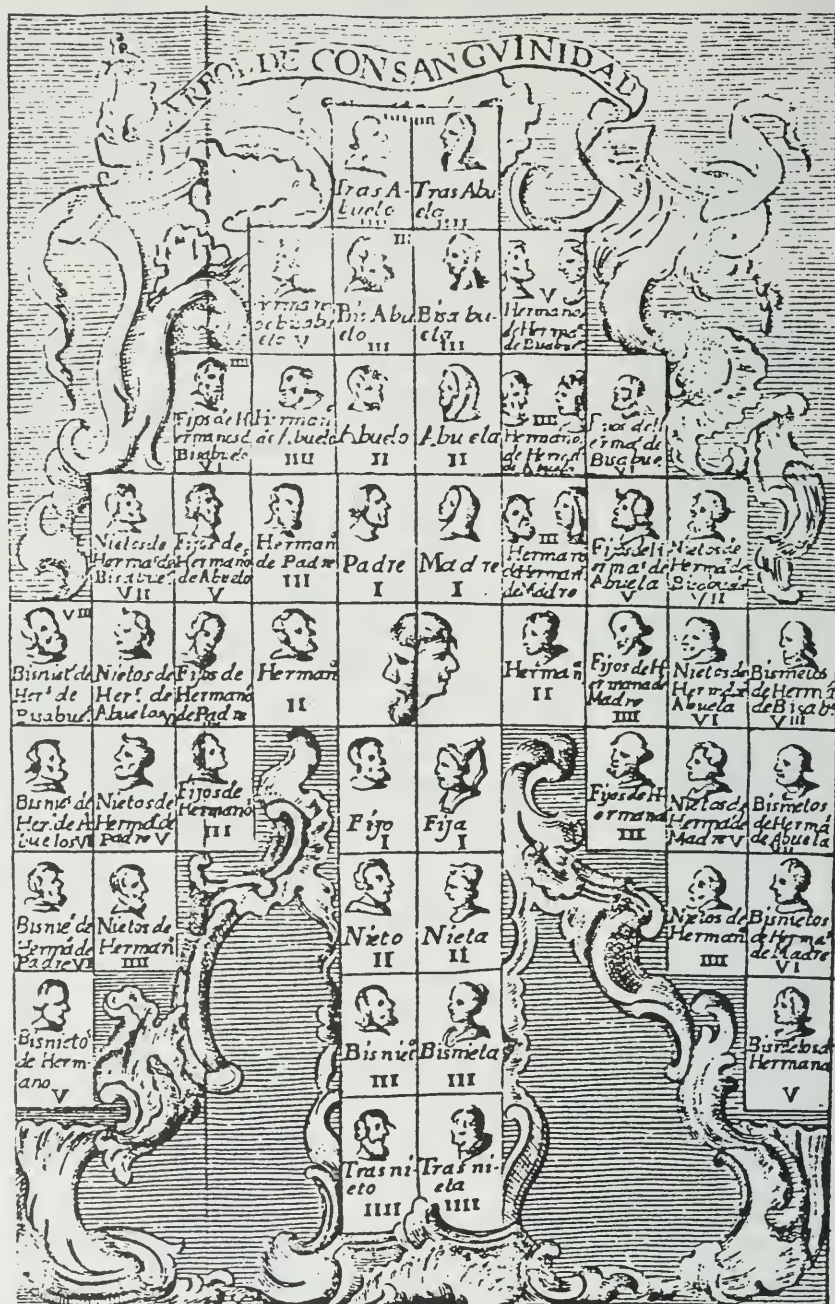 ARBOL DE CONSANGVINIDAD
Tras A-
buelo
IIII
Tras Abu
ela
IIII
de Bisabu
elo V
III
Bis Abu
elo
III
Bisabu-
ela
III
V
Hermano
de Herma.
de Bisabue.
IIII
Fijos de H
ermanos d
Bisabuelo
VI
Herman
de Abuelo
IIII
Abuelo
II
Abuela
II
IIII
Hermano,
de Herma.
de Abuela
Fijos de H
erma. de
Bisabue.
VI
Nietos de
Herma. de
Bisabue.
VII
Fijos de
Hermano
de Abuelo
V
Herman
de Padre
III
Padre
I
Madre
I
III
Hermano
d Herman
de Madre
Fijos de H
erma. de
Abuela
V
Nietos de
Herma. de
Bisabue.
VII
VIII
Bisniet. de
Her. de
Bisabue.
Nietos de
Her. de
Abuelos VI
Fijos de
Hermano
de Padre
Herman
II
Herman
II
Fijos de H
ermana de
Madre
IIII
Nietos de
Herma. d
Abuela
VI
Bisnietos
de Herm.
de Bisab.
VIII
Bisnie. de
Her. de A
buelos VII
Nietos de
Herma. de
Padre V
Fijos de
Hermano
III
Fijo
I
Fija
I
Fijos de H
ermana
III
Nietos de
Herma. de
Madre V
Bisnietos
de Herma.
de Abuela
Bisnie. de
Herma. de
Padre VI
Nietos de
Herman
IIII
Nieto
II
Nieta
II
Nietos de
Herman
IIII
Bisnietos
de Herma.
de Madre
VI
Bisnieto
de Herm-
ano
V
Bisniet.
III
Bisnieta
III
Bisnietos d
Hermana
V
Trasni-
eto
IIII
Trasni-
eta
IIII